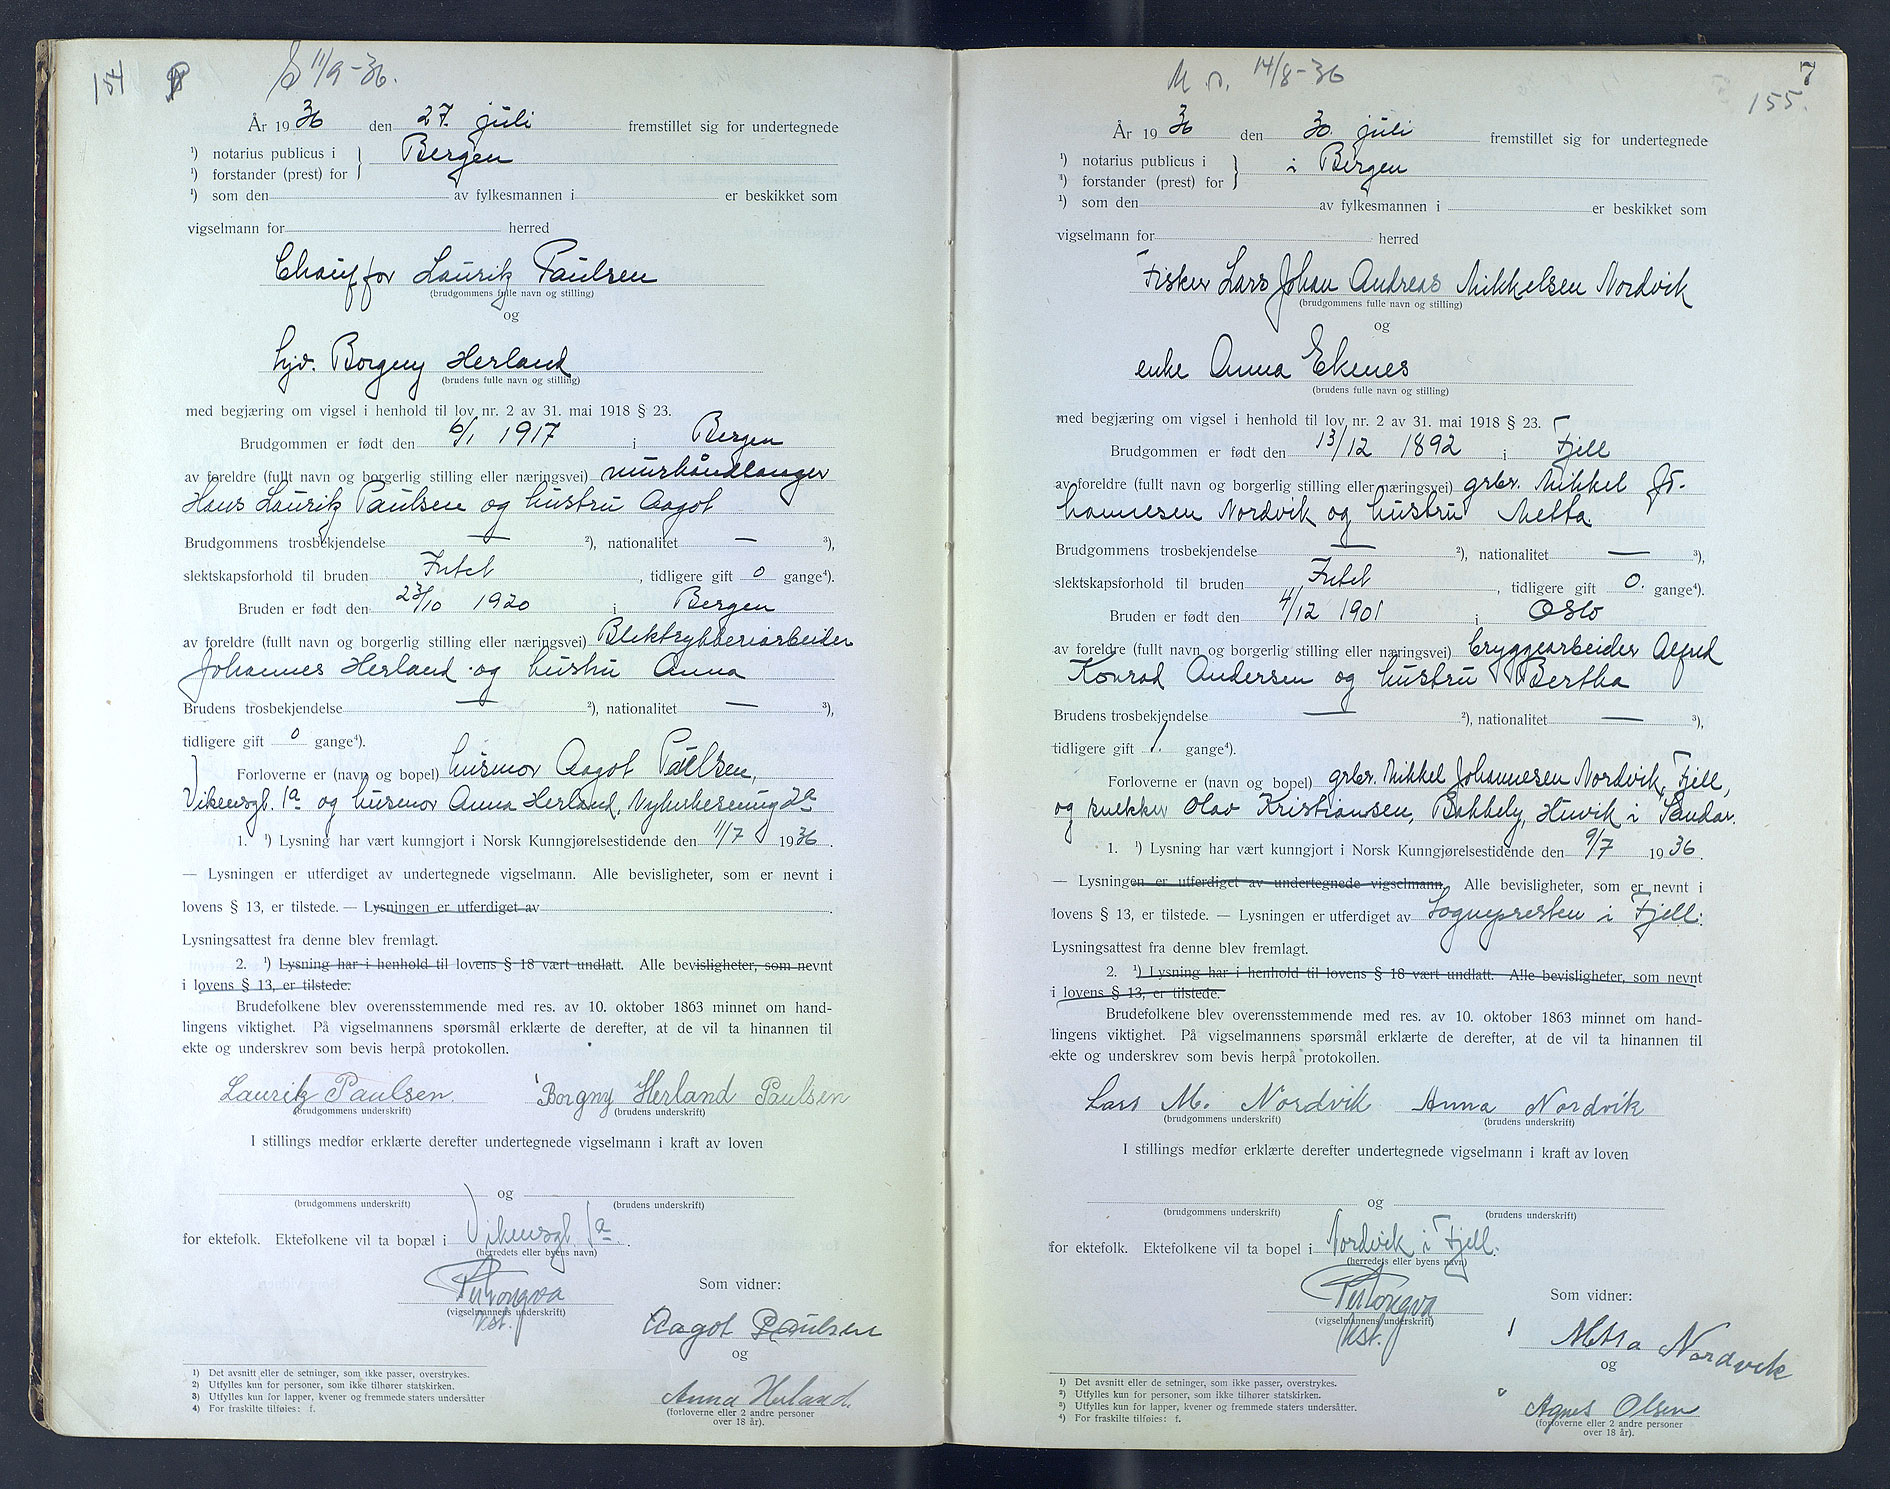 154
S 11/9-36.
År 1936 den 27. juli fremstillet sig for undertegnede
¹) notarius publicus i } Bergen
¹) forstander (prest) for
¹) som den av fylkesmannen i er beskikket som
vigselmann for herred
Chauffør Laurik Paulsen
(brudgommens fulle navn og stilling)
og
hjv. Borgny Herland
(brudens fulle navn og stilling)
med begjæring om vigsel i henhold til lov nr. 2 av 31. mai 1918 § 23.
Brudgommen er født den 6/1 1917 i Bergen
av foreldre (fullt navn og borgerlig stilling eller næringsvei) murhåndlanger
Hans Laurik Paulsen og hustru Aagot
Brudgommens trosbekjendelse — ²), nationalitet — ³),
slektskapsforhold til bruden Intet, tidligere gift 0 gange⁴).
Bruden er født den 23/10 1920 i Bergen
av foreldre (fullt navn og borgerlig stilling eller næringsvei) Blektrykkeriarbeider
Johannes Herland og hustru Anna
Brudens trosbekjendelse — ²), nationalitet — ³),
tidligere gift 0 gange⁴).
Forloverne er (navn og bopel) husmor Aagot Paulsen,
Vikensgt. 1a og husmor Anna Herland, 2a
1. ¹) Lysning har vært kunngjort i Norsk Kunngjørelsestidende den 11/7 1936.
— Lysningen er utferdiget av undertegnede vigselmann. Alle bevisligheter, som er nevnt i
lovens § 13, er tilstede. — Lysningen er utferdiget av
Lysningsattest fra denne blev fremlagt.
2. ¹) Lysning har i henhold til lovens § 18 vært undlatt. Alle bevisligheter, som nevnt
i lovens § 13, er tilstede.
Brudefolkene blev overensstemmende med res. av 10. oktober 1863 minnet om hand-
lingens viktighet. På vigselmannens spørsmål erklærte de derefter, at de vil ta hinannen til
ekte og underskrev som bevis herpå protokollen.
Laurik Paulsen. Borgny Herland Paulsen
(brudgommens underskrift) (brudens underskrift)
I stillings medfør erklærte derefter undertegnede vigselmann i kraft av loven
og
(brudgommens underskrift) (brudens underskrift)
for ektefolk. Ektefolkene vil ta bopæl i Vikensgt. 1a.
(herredets eller byens navn)
Som vidner:
(vigselmannens underskrift)
Aagot Paulsen
og
Anna Herland.
(forloverne eller 2 andre personer
over 18 år).
1) Det avsnitt eller de setninger, som ikke passer, overstrykes.
2) Utfylles kun for personer, som ikke tilhører statskirken.
3) Utfylles kun for lapper, kvener og fremmede staters undersåtter
4) For fraskilte tilføies: f.
7
155.
M. 14/8-36
År 1936 den 30. juli fremstillet sig for undertegnede
¹) notarius publicus i } i Bergen
¹) forstander (prest) for
¹) som den av fylkesmannen i er beskikket som
vigselmann for herred
Fisker Lars Johan Andreas Mikkelsen Nordvik
(brudgommens fulle navn og stilling)
og
enke Anna Ekenes
(brudens fulle navn og stilling)
med begjæring om vigsel i henhold til lov nr. 2 av 31. mai 1918 § 23.
Brudgommen er født den 13/12 1892 i Fjell
av foreldre (fullt navn og borgerlig stilling eller næringsvei) grbr. Mikkel Jo-
hannesen Nordvik og hustru Metta.
Brudgommens trosbekjendelse — ²), nationalitet — ³),
slektskapsforhold til bruden Intet, tidligere gift 0. gange⁴).
Bruden er født den 4/12 1901 i Oslo
av foreldre (fullt navn og borgerlig stilling eller næringsvei) bryggearbeider Alfred
Konrad Andersen og hustru Bertha
Brudens trosbekjendelse — ²), nationalitet — ³),
tidligere gift 1. gange⁴).
Forloverne er (navn og bopel) grbr. Mikkel Johannesen Nordvik, Fjell,
og snekker Olav Kristiansen, Bakkely, Huvik i Sandar.
1. ¹) Lysning har vært kunngjort i Norsk Kunngjørelsestidende den 9/7 1936.
— Lysningen er utferdiget av undertegnede vigselmann. Alle bevisligheter, som er nevnt i
lovens § 13, er tilstede. — Lysningen er utferdiget av Sognepresten i Fjell.
Lysningsattest fra denne blev fremlagt.
2. ¹) Lysning har i henhold til lovens § 18 vært undlatt. Alle bevisligheter, som nevnt
i lovens § 13, er tilstede.
Brudefolkene blev overensstemmende med res. av 10. oktober 1863 minnet om hand-
lingens viktighet. På vigselmannens spørsmål erklærte de derefter, at de vil ta hinannen til
ekte og underskrev som bevis herpå protokollen.
Lars M. Nordvik Anna Nordvik
(brudgommens underskrift) (brudens underskrift)
I stillings medfør erklærte derefter undertegnede vigselmann i kraft av loven
og
(brudgommens underskrift) (brudens underskrift)
for ektefolk. Ektefolkene vil ta bopel i Nordvik i Fjell.
(herredets eller byens navn)
Som vidner:
(vigselmannens underskrift)
Metta Nordvik
og
Agnes Olsen
(forloverne eller 2 andre personer
over 18 år).
1) Det avsnitt eller de setninger, som ikke passer, overstrykes.
2) Utfylles kun for personer, som ikke tilhører statskirken.
3) Utfylles kun for lapper, kvener og fremmede staters undersåtter.
4) For fraskilte tilføies: f.